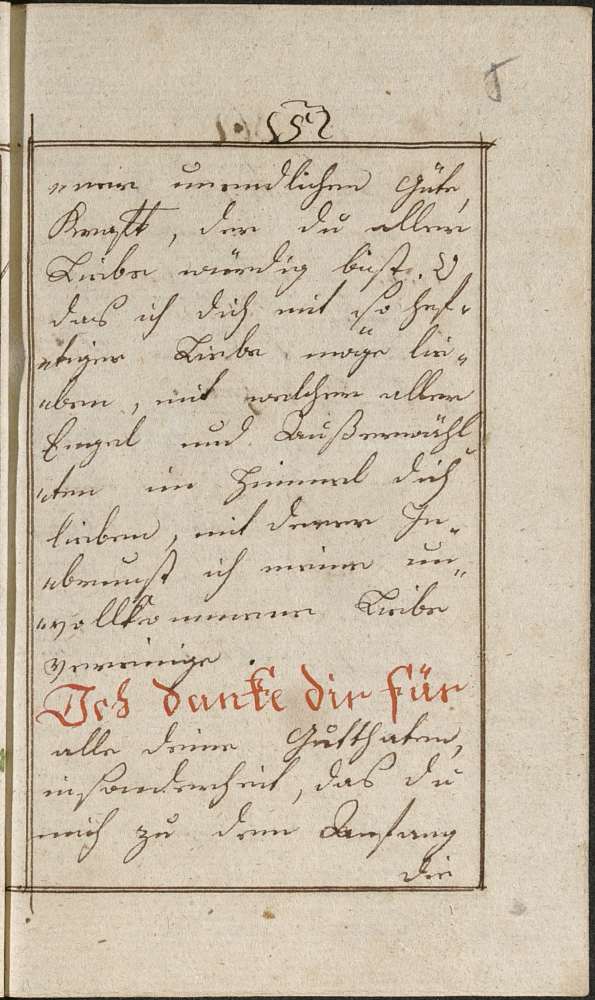 157
„ner unendlichen Güte,
Krafft, der du aller
Liebe würdig bist. O
das ich dich mit so hef„
„tiger Liebe möge lie„
„ben, mit welcher alle
Engel und Außerwähl
„ten im Himmel dich
lieben, mit derer In„
„brunst ich meine un„
„vollkommene Liebe
vereinige.
Ich danke dir für
alle deine Gutthaten,
insonderheit, das du
mich zu dem
die